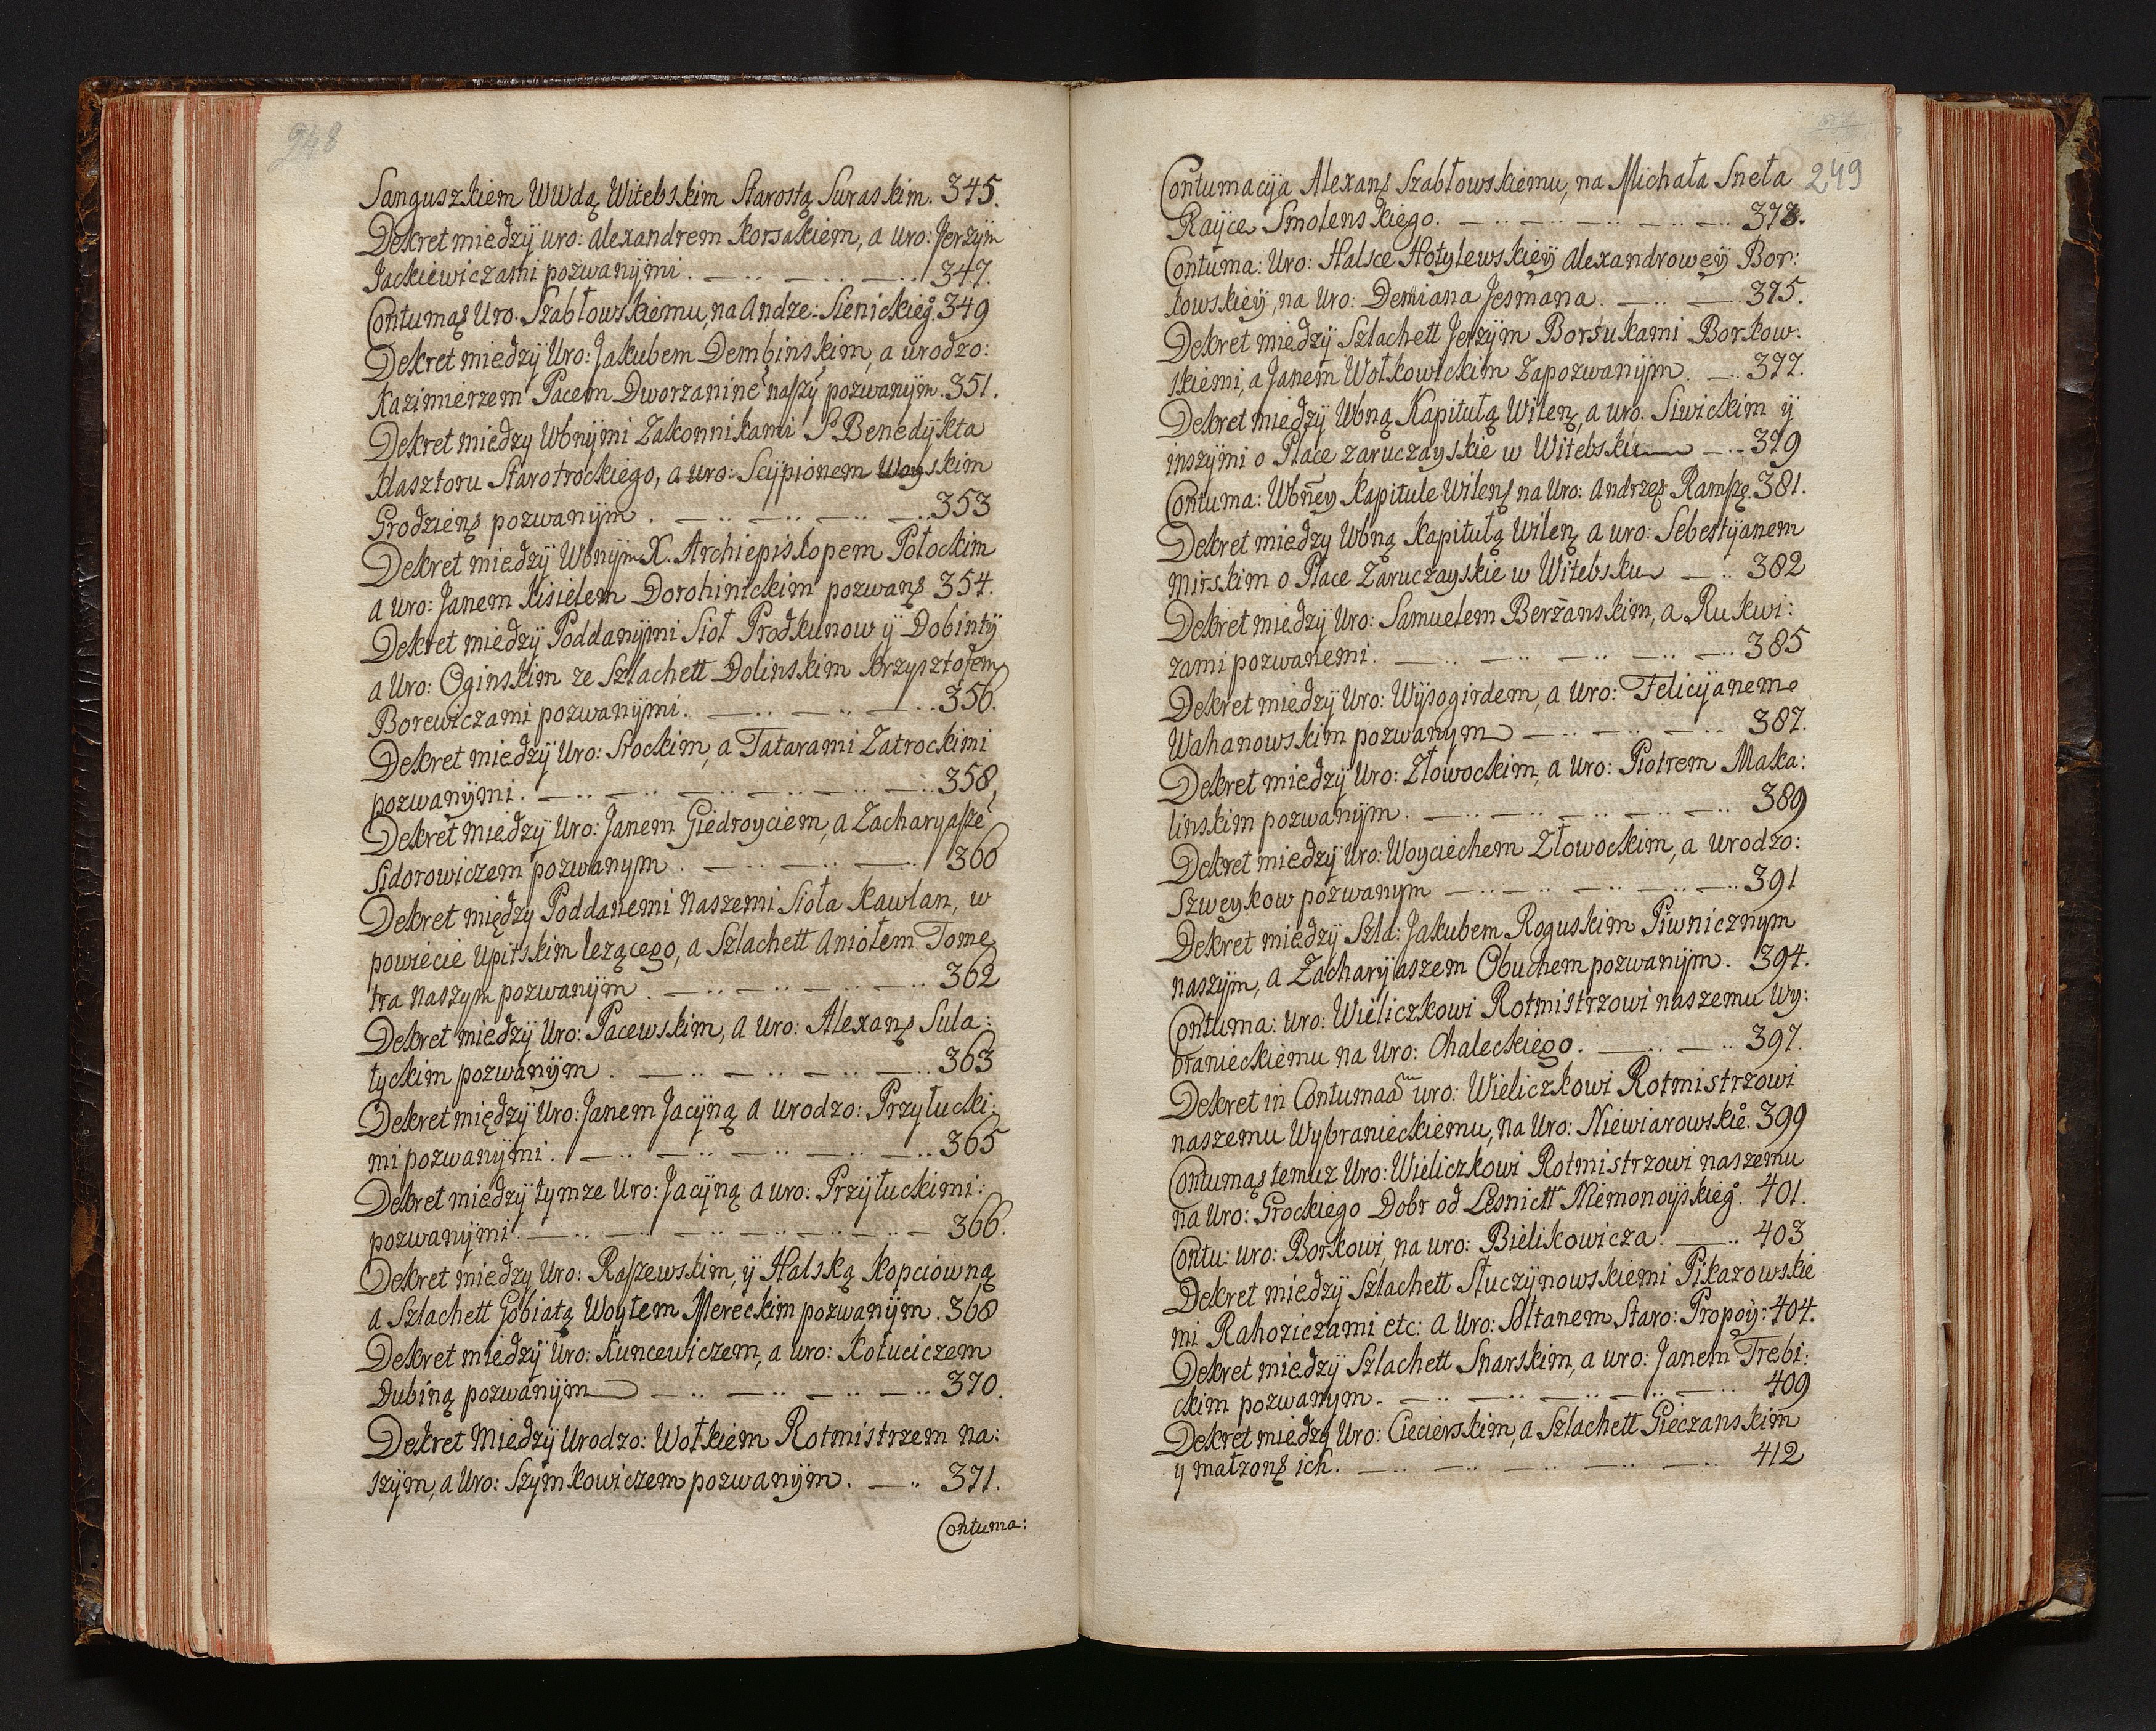 248
Sanguszkiem Wwdą Witebskim Starostą Suraskim. 345.
Dekret miedzÿ uro: Alexandrem Korsakiem, a Uro: Jerzÿm
Jackiewiczami pozwanÿmi. 347.
Contumaȩ Uro. Szabłowskiemu, na Andze: Sienickieg̊. 349
Dekret miedzÿ Uro: Jakubem Dembinskim, a urodzo:
Kazimierzem Pacem Dworzaninē naszÿ pozwanÿm. 351.
Dekret miedzy Wbnÿmi Zakonnikami S. Benedÿkta
Klasztoru Starotrockiego, a uro: Scÿpionem Woyskim
Grodzienȩ pozwanÿm. 353
Dekret miedzÿ WbnÿmX. Archiepiskopem Połockim
a uro: Janem Kisielem Dorohinickim pozwanȩ 354.
Dekret miedzÿ Poddanÿmi Sioł Prodkunow ÿ Dobintÿ
a Uro: Oginskim ze Szlachett Dolinskim Krzysztofem
Borewiczami pozwanÿmi. 356.
Dekret miedzÿ Uro: Srockim, a Tatarami Zatrockimi
pozwanÿmi. 358,
Dekret miedzÿ Uro: Janem Giedroyciem, a Zacharyaszē
Sidorowiczem pozwanym. 360
Dekret między Poddanemi Naszemi Sioła Kawlan, w
powiecie Upitskim lezącego, a Szlachett Aniołem Tome
tra Naszym pozwanÿm. 362
Dekret miedzÿ Uro: Pacewskim, a Uro: Alexanȩ Sula:
tyckim pozwanÿm. 363
Dekret między Uro: Janem Jacÿną a Urodzo: Przyłucki:
mi pozwanÿmi. 365
Dekret miedzÿ tymze Uro: Jacÿną a uro: Przÿłuckimi:
pozwanÿmi. 366.
Dekret miedzy Uro: Raszewskim, ÿ Halską Kopciowną
a Szlachett Gobiatą Woytem Mereckim pozwanÿm. 368
Dekret miedzÿ Uro: Kuncewiczem, a uro: Kołuciczem
Dubiną pozwanÿm 370.
Dekret Miedzÿ Urodzo: Wołkiem Rotmistrzem na:
szÿm, a Uro: Szymkowiczem pozwanÿm. 371.
Contuma:
249
Contumacÿa Alexanȩ Szabłowskiemu, na Michała Sneła
Raÿce Smolenskiego. 373.
Contuma: Uro: Halsce Hotylewskieÿ Alexandroweÿ Bor:
kowskieÿ, na Uro: Demiana Jesmana. 375.
Dekret miedzÿ Szlachett Jerzÿm Borsukami Borkow:
skiemi, a Janem Wołkowickim Zapozwanÿm. 377.
Dekret miedzÿ Wbną Kapitułą Wilenȩ, a uro. Siwickim ÿ
inszÿmi o Place zaruczayskie w Witebsku 379
Contuma: Wbney Kapitule Wilenȩ na Uro: Andrzeȩ Ramszȩ. 381.
Dekret miedzy Wbną Kapitułą Wilenȩ a uro: Sebestÿanem
Mirskim o Place Zaruczayskie w Witebsku 382
Dekret miedzÿ Uro: Samuelem Berżanskim, a Rukwi:
zami pozwanemi. 385
Dekret miedzÿ Uro: Wÿsogirdem, a Uro: Felicÿanem
Wahanowskim pozwanÿm 387.
Dekret miedzÿ Uro: Złowockim, a Uro: Piotrem Maka:
linskim pozwanÿm. 389
Dekret miedzÿ Uro: Woyciechem Złowockim, a Urodzo:
Szweykow pozwanym 391
Dekret miedzÿ Szla: Jakubem Roguskim Piwnicznym
naszÿm, a Zacharÿaszem Obuchem pozwanÿm. 394.
Contuma: Uro: Wieliczkowi Rotmistrzowi naszemu Wy:
branieckiemu na Uro: Chaleckiego. 397.
Dekret in Contumaam uro: Wieliczkowi Rotmistrzowi
naszemu Wybranieckiemu, na Uro: Niewiarowskie̊. 399
Contumaȩ temuz Uro: Wieliczkowi Rotmistrzowi naszemu
na Uro: Grockiego Dobr od Lesnictt Niemonoÿskieg̊. 401.
Contu: uro: Borkowi, na uro: Bielikowicza. 403
Dekret miedzÿ Szlachett Słuczÿnowskiemi Pikazowskie
mi Rahoziczami etc: a Uro: Sołtanem Staro: Propoÿ: 404.
Dekret miedzÿ Szlachett Snarskim, a uro: Janem Trebi:
ckim pozwanym. 409
Dekret miedzy Uro: Ciecierskim, a Szlachett Pieczanskim
y małzonȩ ich. 412